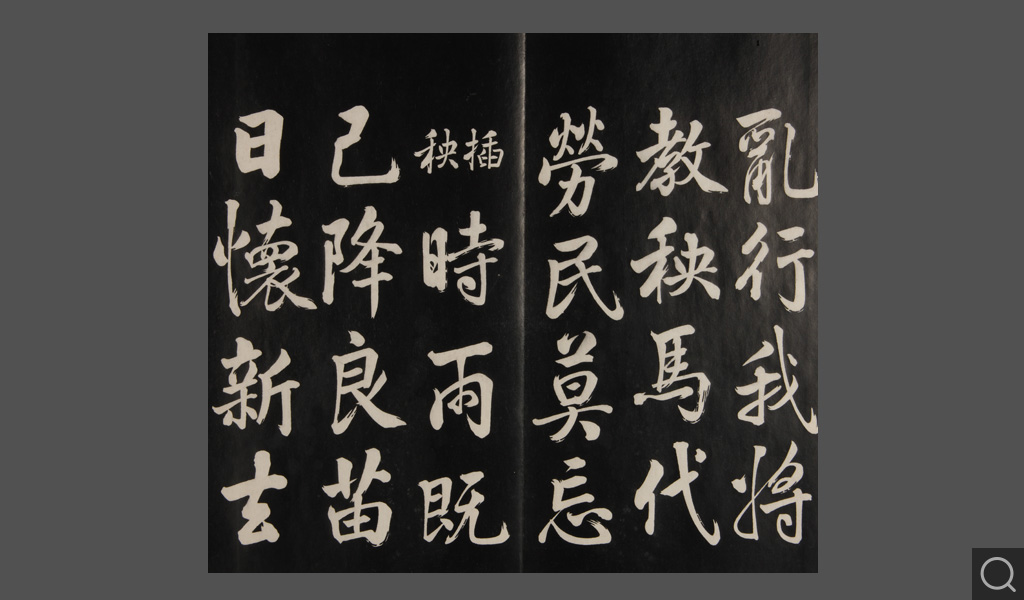 亂行我將
教秧馬代
勞民莫忘
插秧
時雨既
已降良苗
日懷新去